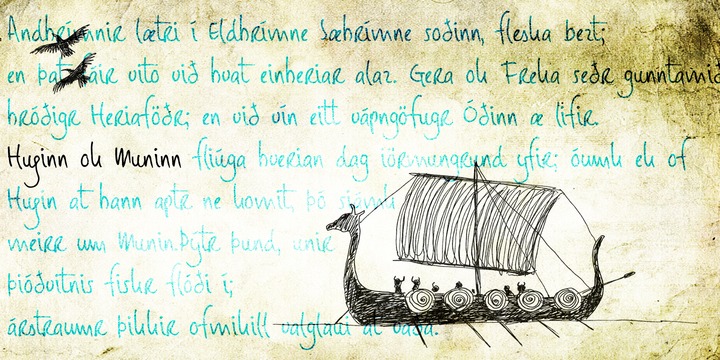 Andhrímnir lætri í Eldhrímne Sæhrímne soðinn, fleska bezt;
en þat fáir vito við hvat einheriar alaz. Gera ok Freka seðr gunntamið
hróðigr Heriaföðr; en við vín eitt vápngöfugr Óðinn æ lifir.
Huginn ok Muninn fliúga hverian dag iörmungrund yfir; óumk ek of
Hugin at hann aptr ne komit, þó siámk
meirr um Munin.Þýtr þund, unir
þióðvitnis fiskr flóði í;
árstraumr þikkir ofmikill valglaui at vaða.